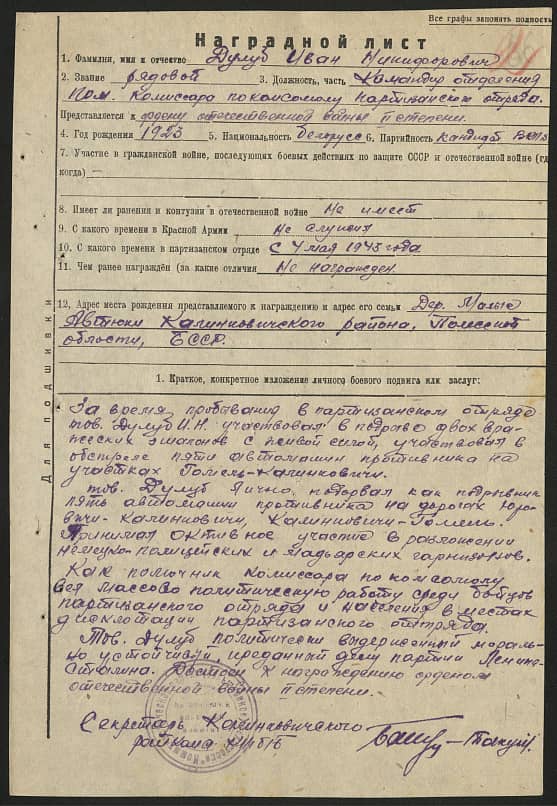 Все графы заполнять полность
Наградной лист
1. Фамилия, имя и отчество Дулуб Иван Никифорович
2. Звание рядовой 3. Должность, часть Командир отделения
Пом. комиссара по комсомолу партизанском отряда.
Представляется к ордену отечественной войны II степени.
4. Год рождения 1923 5. Национальность белорусс 6. Партийность кандидат
7. Участие в гражданской войне, последующих боевых действиях по защите СССР и отечественной войне (гд
когда) —
8. Имеет ли ранения и контузии в отечественной войне Не имеет
9. С какого времени в Красной Армии Не служит
10. С какого времени в партизанском отряде С 4 мая 1943 года
11. Чем ранее награждён (за какие отличия Не награжден.
12. Адрес места рождения представляемого к награждению и адрес его семьи Дер. Малые
Автюки Калинковичского района, Полесской
области, БССР.
Для подшивки
1. Краткое, конкретное изложение личного боевого подвига или заслуг:
За время пребывания в партизанском отряде
тов. Дулуб И.Н. участвовал в подрыве двух вра-
жеских эшалонов с живой силой, участвовал в
обстреле пяти автомашин противника на
участках Гомель-Калинковичи.
тов. Дулуб лично подорвал как подрывник
пять автомашин противника на дорогах Юро-
вичи-Калинковичи, Калинковичи-Гомель.
Принимал активное участие в разложении
немецко-полицейских и мадьарских гарнизонов.
Как помочник комиссара по комсомолу
вел массово политическую работу среди бойцов
партизанского отряда и населения в местах
дислокации партизанского отряда.
Тов. Дулуб политически выдержанный мораль-
но устойчивый, преданный делу партии Ленина-
Сталина. Достоин к награждению орденом
отечественной войны II степени.
Секретарь Калинковичского
райкома КП(б)Б